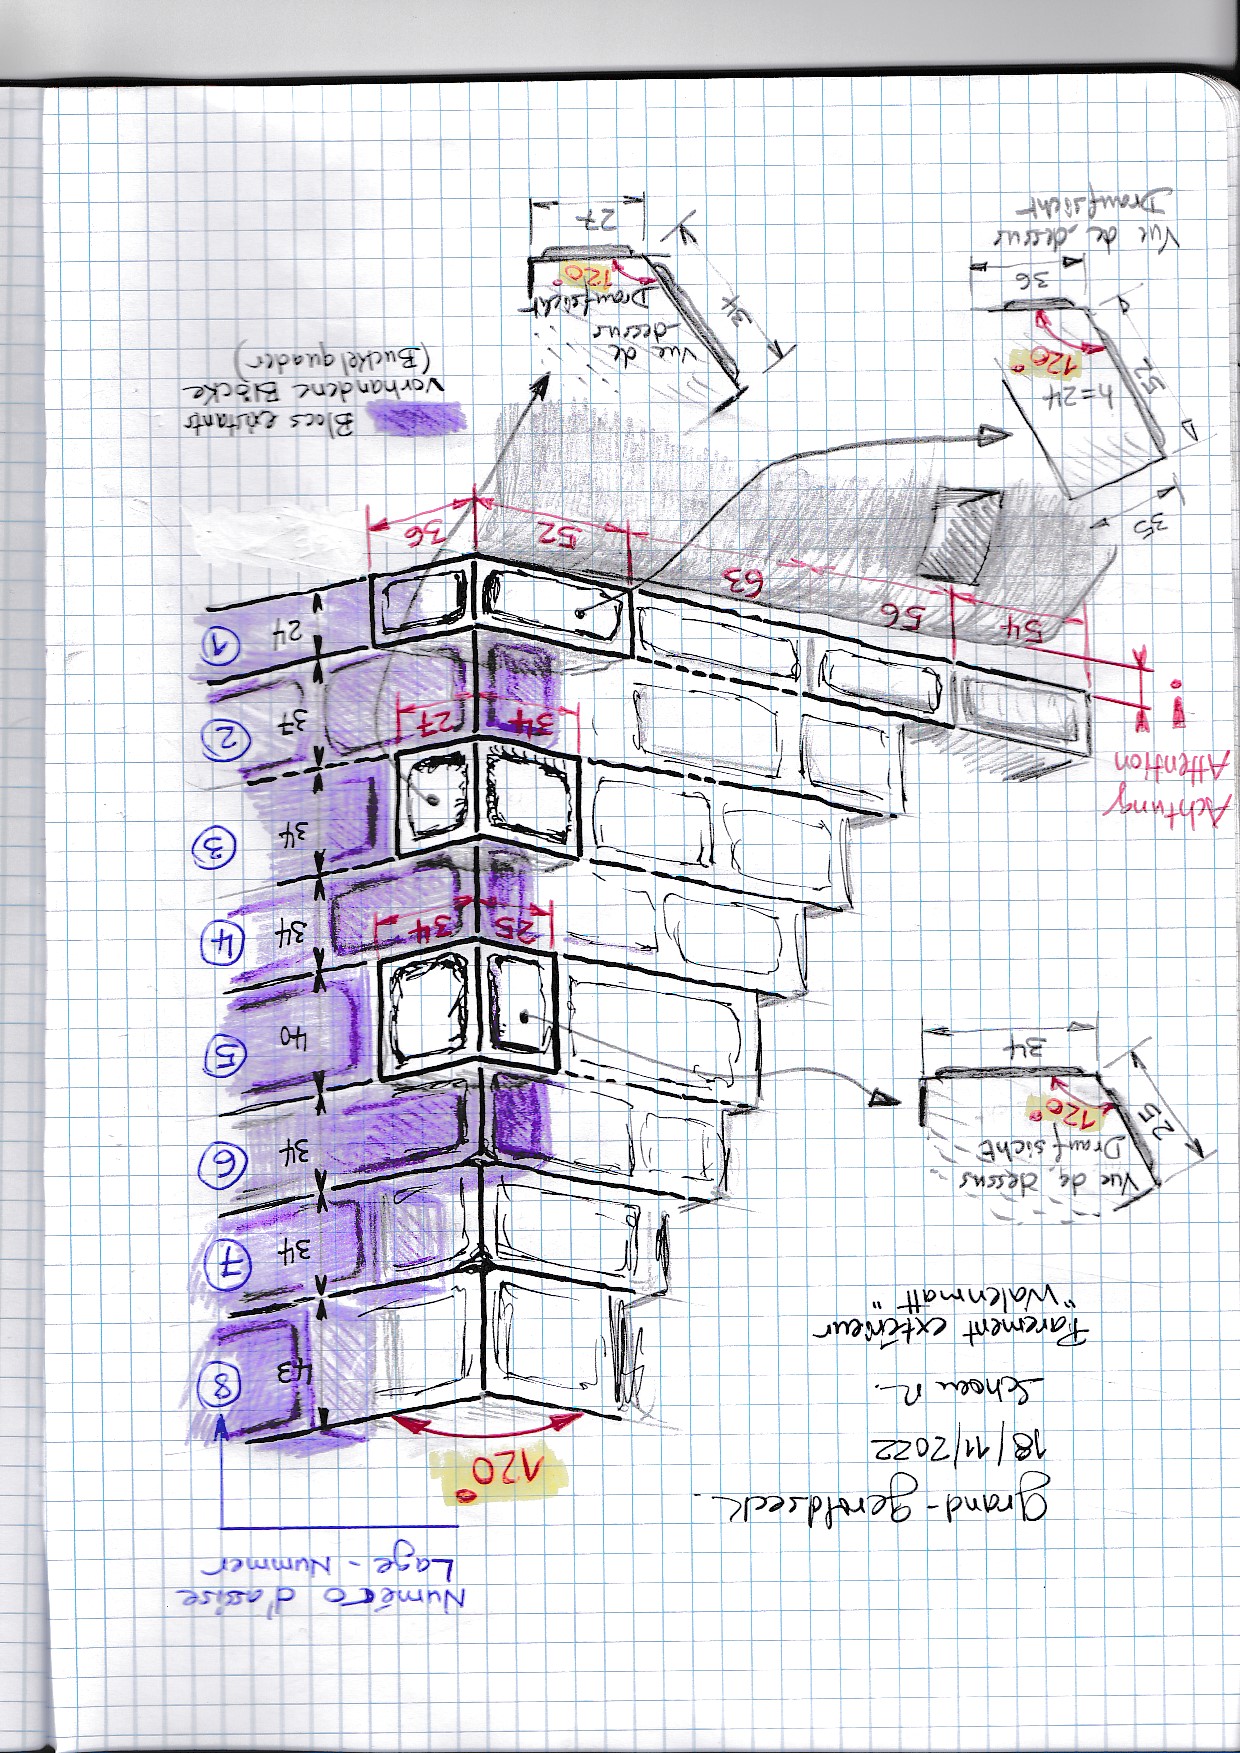 Numéro d'assise
Lage-Nummer
Grand-Geroldseck.
18/11/2022
Schoen R.
Parement extérieur
"Walenmatt"
120°
8
43
7
34
6
34
5
40
4
34
3
34
2
37
1
24
Vue de dessus
Draufsicht
120°
25
34
25
34
34
27
Achtung
Attention
!
54
56
63
52
36
35
52
h=24
120°
36
Vue de dessus
Draufsicht
Vue de
dessus
Draufsicht
120°
34
27
Blocs existants
Vorhandene Blöcke
(Buckelquader)